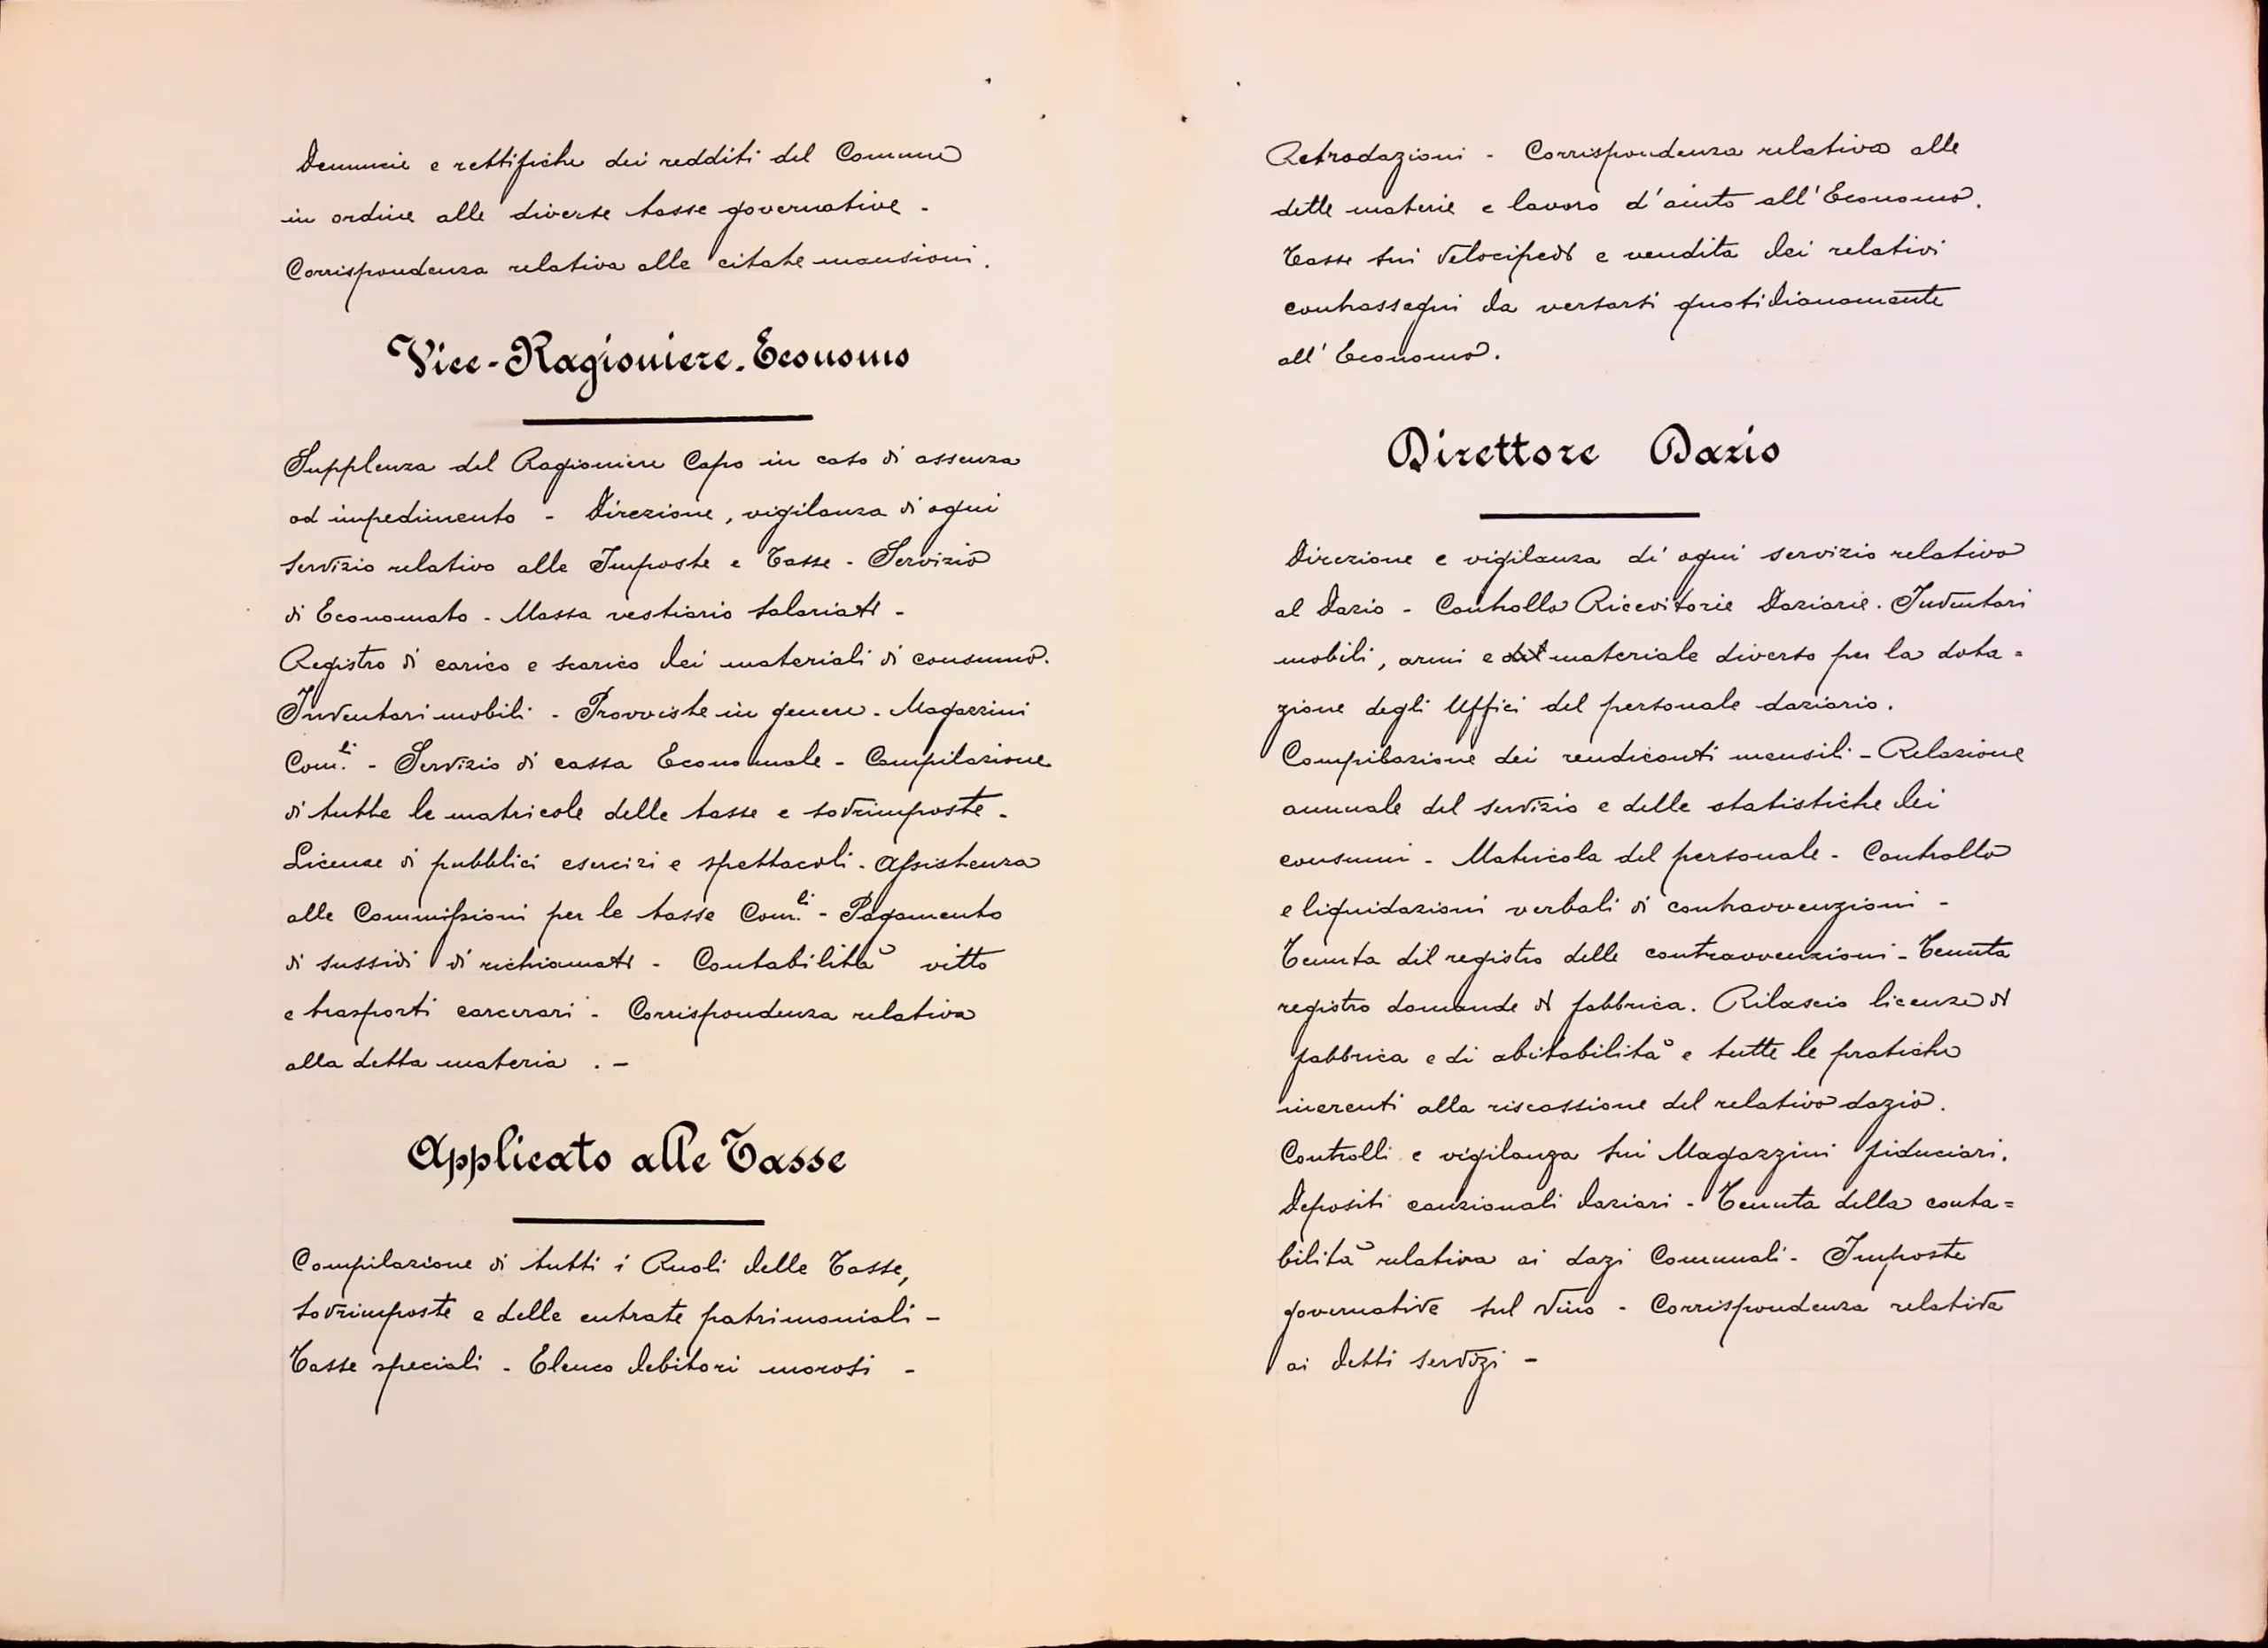 Denuncie e rettifiche dei redditi del Comune
in ordine alle diverse tasse governative -
Corrispondenza relativa alle citate mansioni.
Vice-Ragioniere-Economo
Supplenza del Ragioniere Capo in caso di assenza
od impedimento - Direzione, vigilanza di ogni
servizio relativo alle Imposte e Tasse - Servizio
di Economato - Massa vestiario salariati -
Registro di carico e scarico dei materiali di consumo.
Inventari mobili - Provviste in genere - Magazzini
Com.li - Servizio di cassa Economale - Compilazione
di tutte le matricole delle tasse e sovrimposte -
Licenze di pubblici esercizi e spettacoli - Assistenza
alle Commissioni per le tasse Com.li - Pagamento
di sussidi di richiamati - Contabilità vitto
e trasporti carcerari - Corrispondenza relativa
alla detta materia . -
Applicato alle Tasse
Compilazione di tutti i Ruoli delle Tasse,
sovrimposte e delle entrate patrimoniali -
Tasse speciali - Elenco debitori morosi -
Retrodazioni - Corrispondenza relativa alle
dette materie e lavoro d'aiuto all'Economo.
Tasse sui Velocipedi e vendita dei relativi
contrassegni da versarsi quotidianamente
all'Economo.
Direttore Dazio
Direzione e vigilanza di ogni servizio relativo
al Dazio - Controllo Ricevitorie Daziarie. Inventari
mobili, armi e materiale diverso per la dota=
zione degli Uffici del personale daziario.
Compilazione dei rendiconti mensili - Relazione
annuale del servizio e delle statistiche dei
consumi - Matricola del personale - Controllo
e liquidazioni verbali di contravvenzioni -
Tenuta del registro delle contravvenzioni - Tenuta
registro domande di fabbrica. Rilascio licenze di
fabbrica e di abitabilità e tutte le pratiche
inerenti alla riscossione del relativo dazio.
Controlli e vigilanza sui Magazzini fiduciari.
Depositi cauzionali daziari - Tenuta della conta=
bilità relativa ai dazi Comunali - Imposte
governative sul vino - Corrispondenza relativa
ai detti servizi -